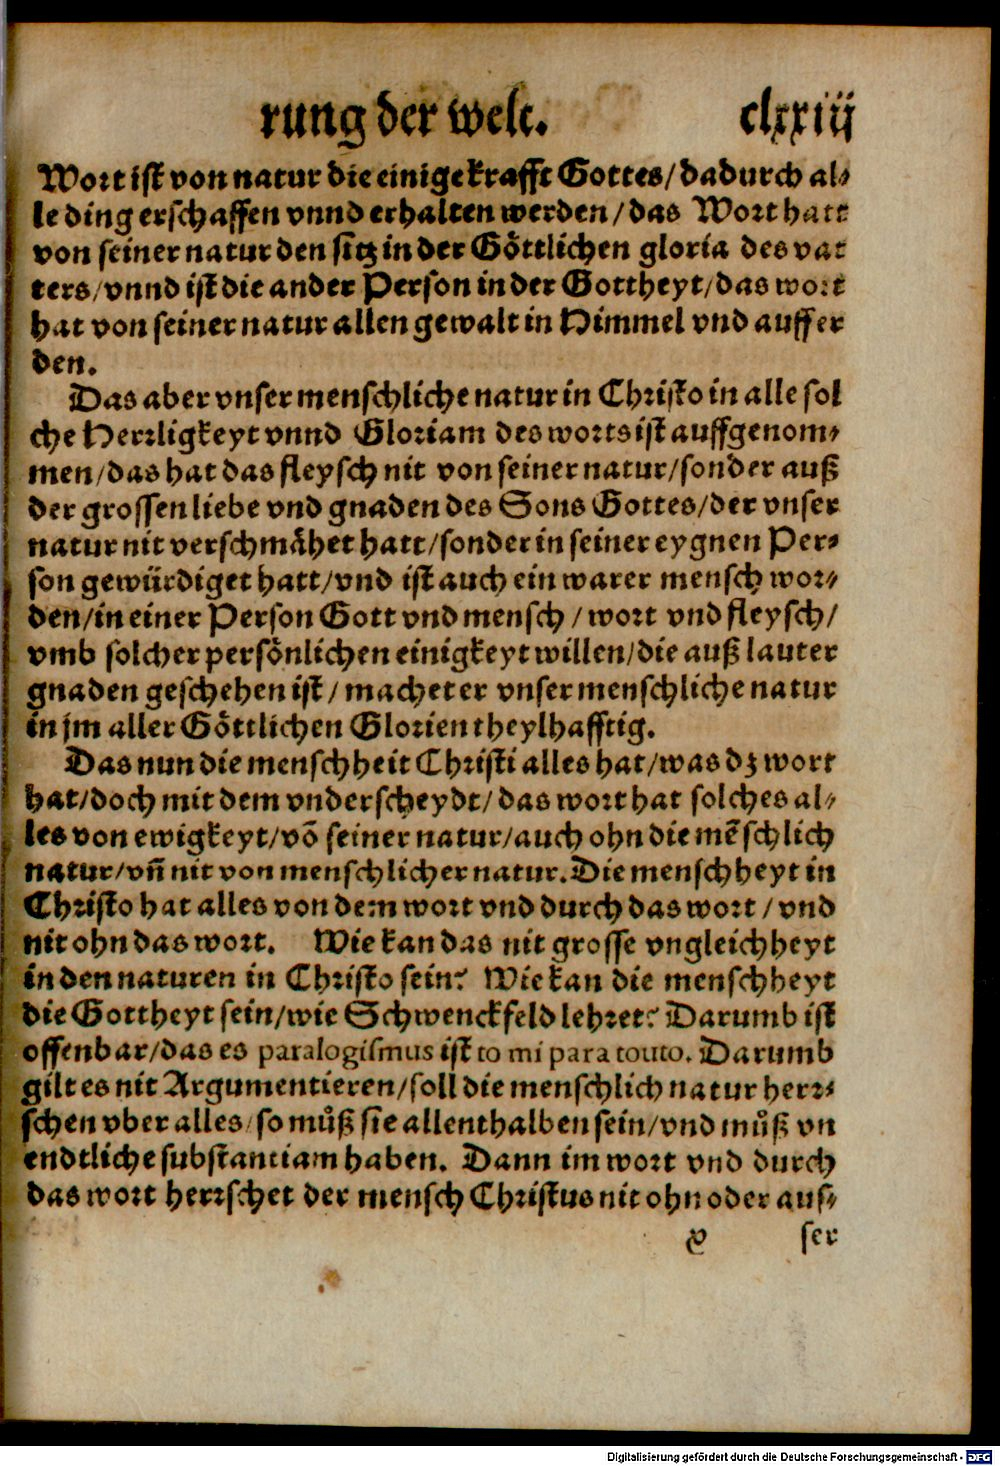 rung der welt. clxxiij
Wort ist von natur die einige krafft Gottes/dadurch al⸗
le ding erschaffen vnnd erhalten werden/das Wort hatt
von seiner natur den sitz in der Göttlichen gloria des vat
ters/vnnd ist die ander Person in der Gottheyt/das wort
hat von seiner natur allen gewalt in Himmel vnd auff er
den.
Das aber vnser menschliche natur in Christo in alle sol
che Herrligkeyt vnnd Gloriam des worts ist auffgenom⸗
men/das hat das fleysch nit von seiner natur/sonder auß
der grossen liebe vnd gnaden des Sons Gottes/der vnser
natur nit verschmähet hatt/sonder in seiner eygnen Per⸗
son gewürdiget hatt/vnd ist auch ein warer mensch wor⸗
den/in einer Person Gott vnd mensch/wort vnd fleysch/
vmb solcher persönlichen einigkeyt willen/die auß lauter
gnaden geschehen ist/machet er vnser menschliche natur
in jm aller Göttlichen Glorien theylhafftig.
Das nun die menschheit Christi alles hat/was dz wort
hat/doch mit dem vnderscheydt/das wort hat solches al⸗
les von ewigkeyt/võ seiner natur/auch ohn die mẽschlich
natur/vñ nit von menschlicher natur. Die menschheyt in
Christo hat alles von dem wort vnd durch das wort/vnd
nit ohn das wort. Wie kan das nit grosse vngleichheyt
in den naturen in Christo sein? Wie kan die menschheyt
die Gottheyt sein/wie Schwenckfeld lehret? Darumb ist
offenbar/das es paralogismus ist to mi para touto. Darumb
gilt es nit Argumentieren/soll die menschlich natur herr⸗
schen vber alles/so můß sie allenthalben sein/vnd můß vn
endtliche substantiam haben. Dann im wort vnd durch
das wort herrschet der mensch Christus nit ohn oder aus⸗
y ser
Digitalisierung gefördert durch die Deutsche Forschungsgemeinschaft - DFG